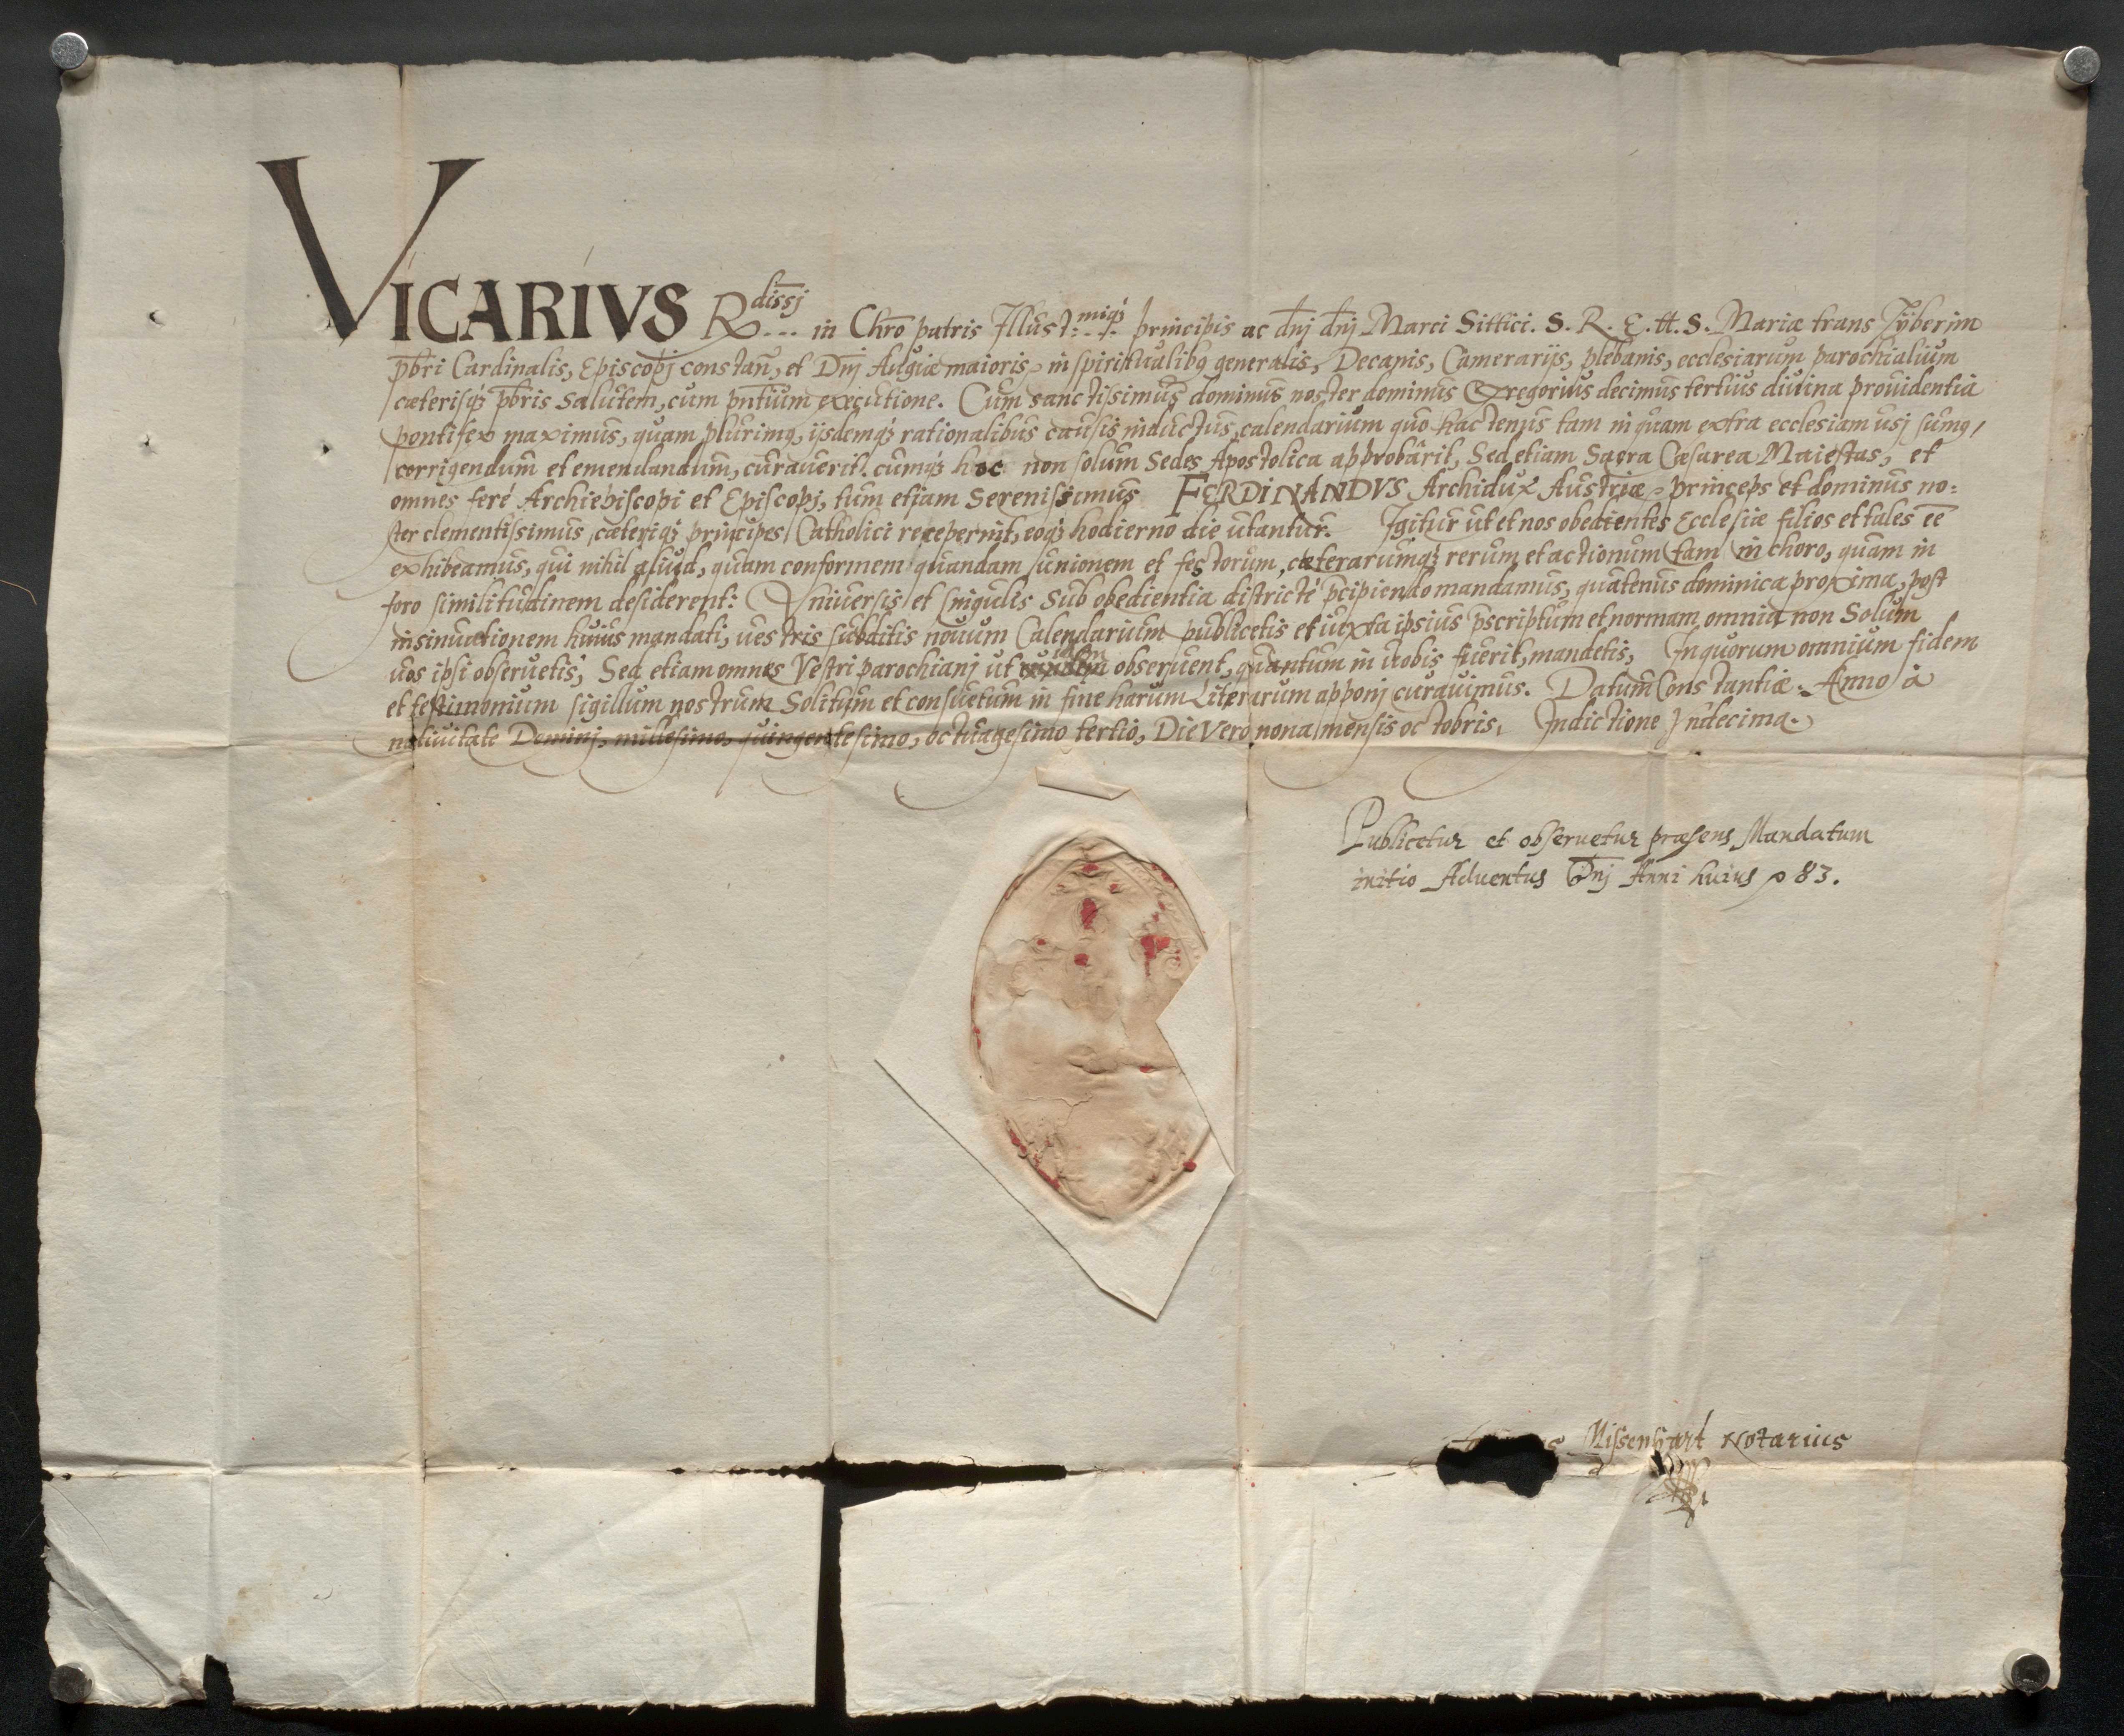 VICARIVS R dissj ... in Chro patris Illust: miqꝫ principis ac dnj dnj Marci Sittici. S. R. E. tt. S. Mariæ trans Tÿberim
pbri Cardinalis, Episcopj constan, et Dnj Augiæ maioris in spiritualibꝫ generalis, Decanis, Camerarijs, plebanis, ecclesiarum parochialium
cæterisqꝫ pbris salutem, cum pntium executione. Cum sanctissimus dominus noster dominus Gregorius decimus tertius diuina prouidentia
pontifex maximus, quam plurimꝫ, ijsdemqꝫ rationalibus causis inductus, calendarium quo hactenus tam in quam extra ecclesiam usj sumꝫ,
corrigendum et emendandum, curauerit. cumqꝫ hoc non solum Sedes Apostolica approbârit, Sed etiam Sacra Cæsarea Maiestas, et
omnes feré Archiepiscopi et Episcopj, tum etiam Serenissimus FERDINANDVS Archidux Austriæ princeps et dominus no:
ster clementissimus, cæteriqꝫ principes Catholici receperint, eoqꝫ hodierno die utantur. Igitur ut et nos obedientes Ecclesiæ filios et tales ee
exhibeamus, qui nihil aliud, quam conformem quandam unionem et festorum, cæterarumqꝫ rerum et actionum tam in choro, quam in
foro similitudinem desiderent: Vniuersis et singulis sub obedientia districté pcipiendo mandamus, quatenus dominica proxima, post
insinuationem huius mandati, uestris subditis nouum Calendarium publicetis et iuxta ipsius pscriptum et normam omnia non Solum
uos ipsi obseruetis, Sed etiam omnes Vestri parochianj ut idem obseruent, quantum in uobis fuerit, mandetis, In quorum omnium fidem
et testimonium sigillum nostrum Solitum et consuetum in fine harum Literarum apponj curauimus. Datum Constantiæ. Anno à
natiuitate Dominj, millesimo, quingentesimo, octuagesimo tertio, Die Vero nona mensis octobris, Indictione Vndecima.
Publicetur et obseruetur præsens Mandatum
initio Aduentus Dnj Anni huius p 83.
Missenhart Notarius